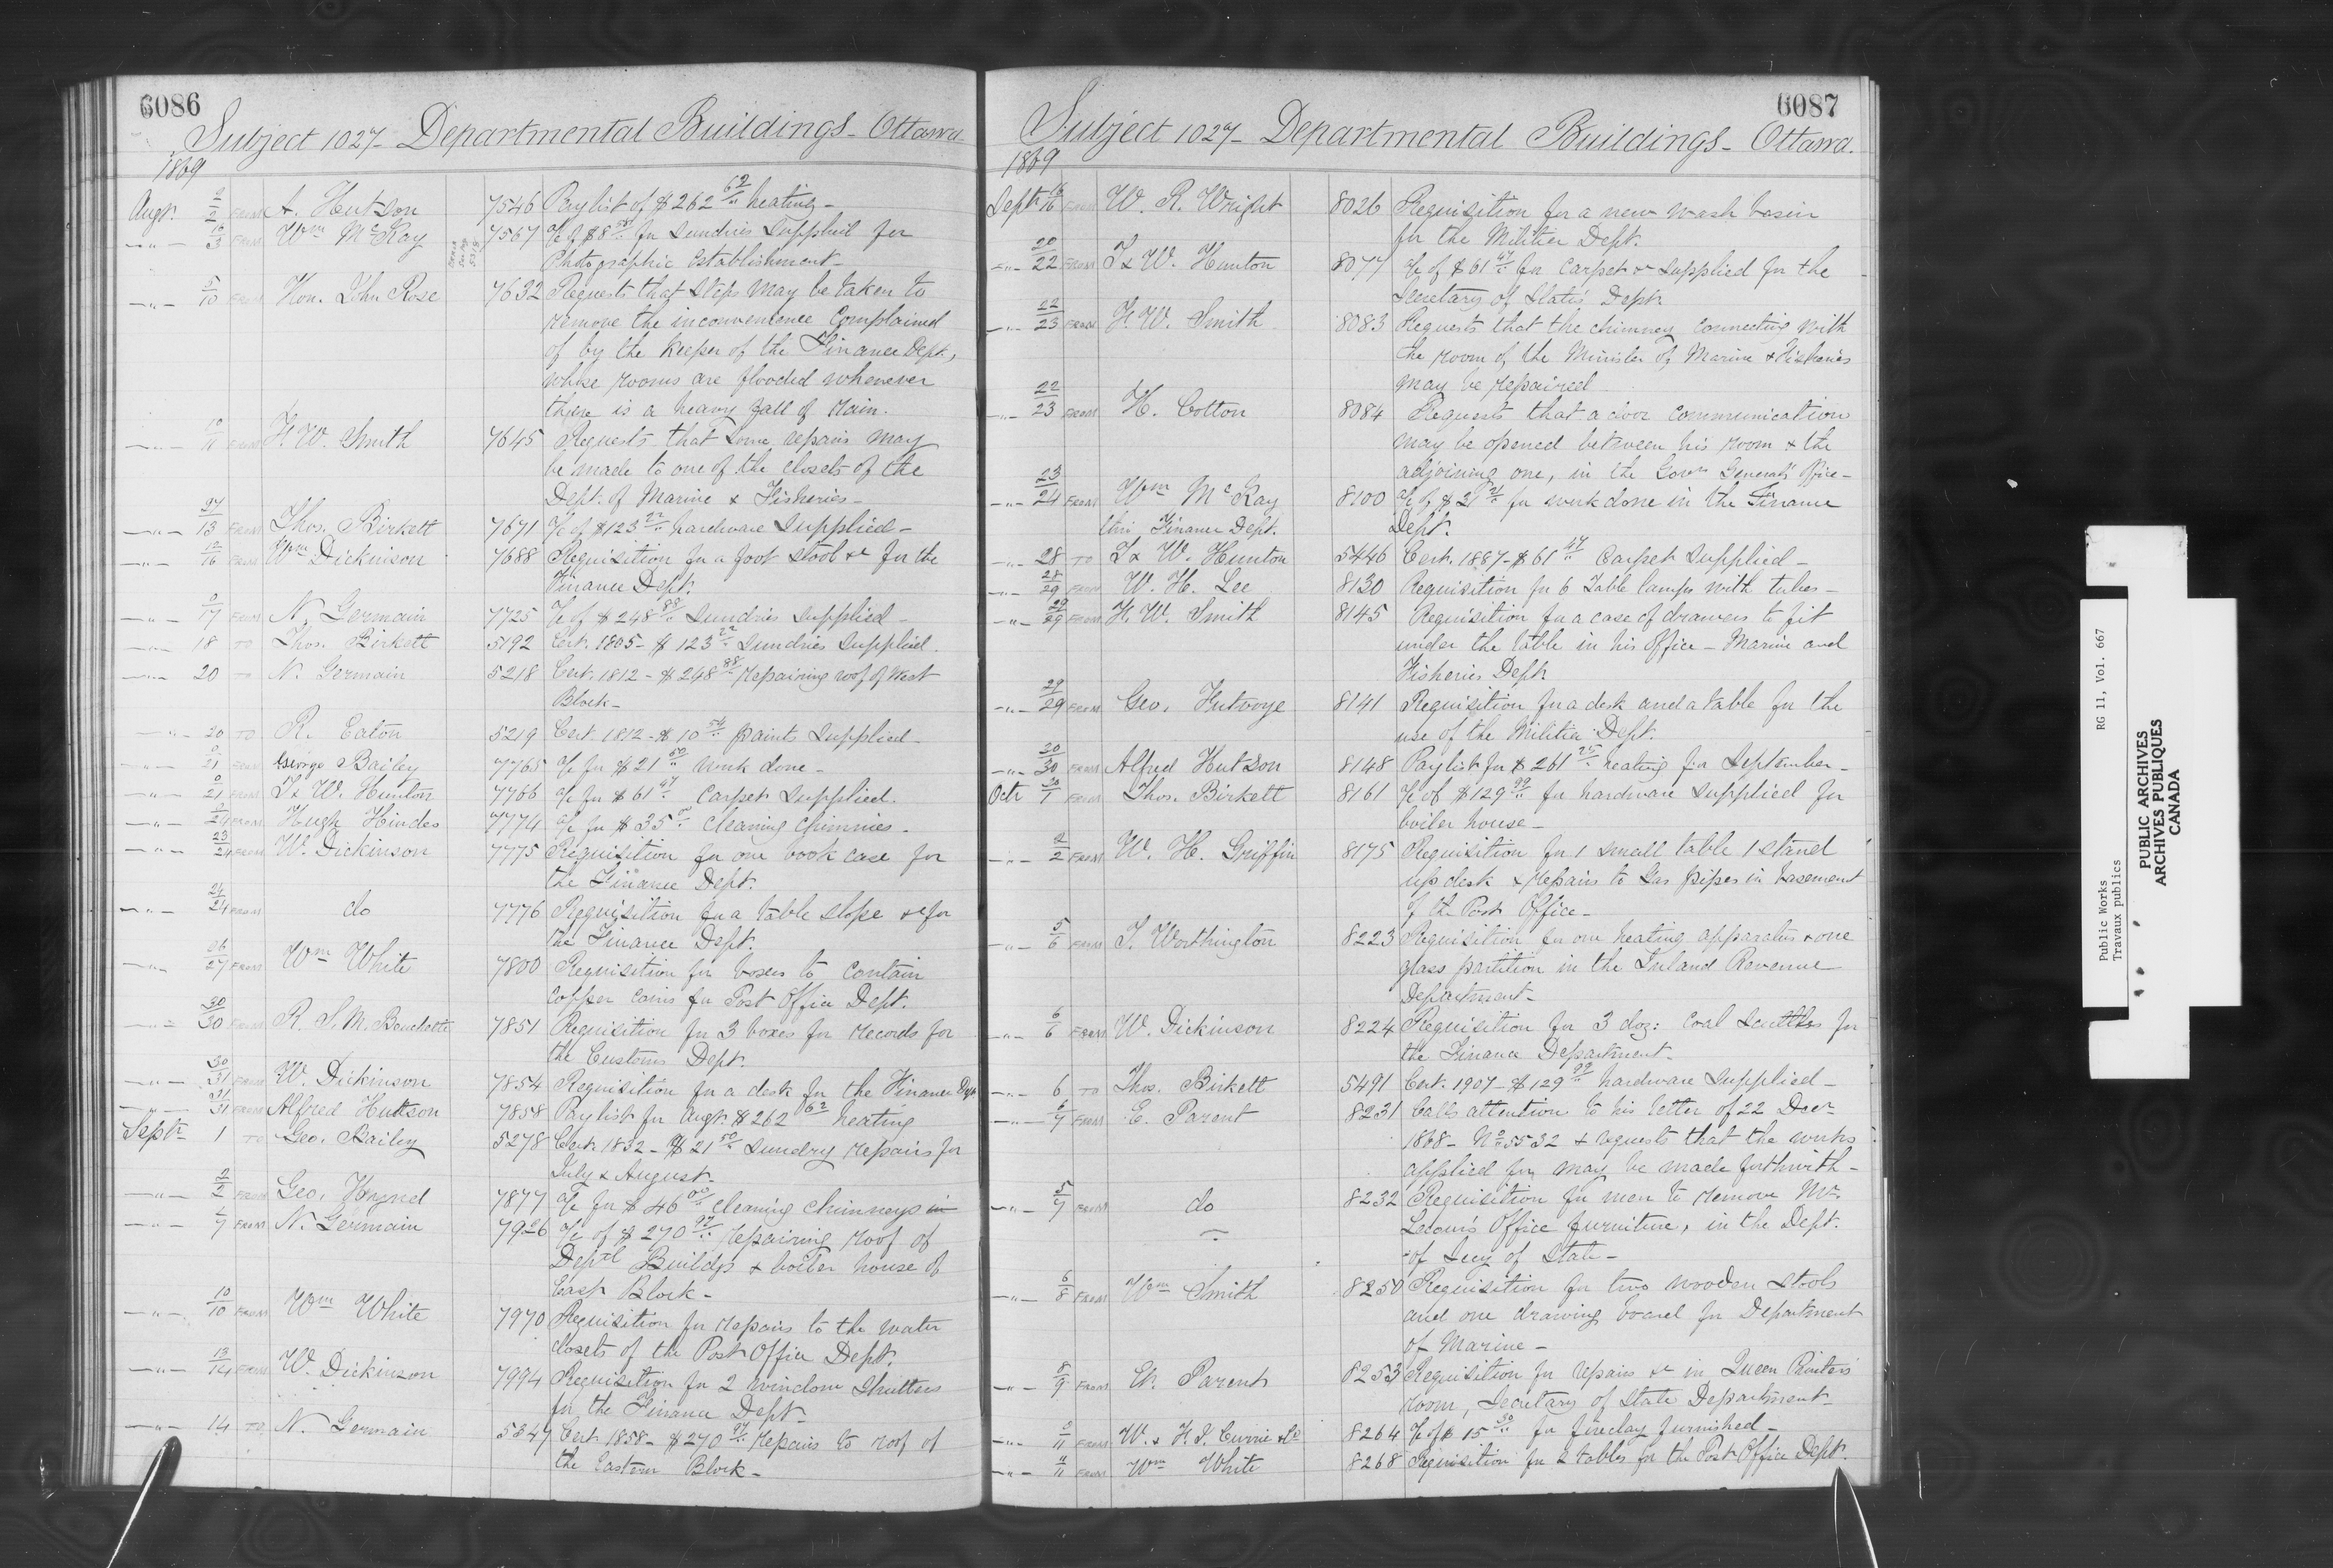 6086
Subject 1027 - Departmental Buildings - Ottawa
1869
Augt. 2/2 FROM A. Hutson 7546 Paylist of $262 62/.. heating -
-"- 10/3 FROM Wm McKay 7567 a/c of $8 for Sundries Supplied for
Photographic Establishment -
-"- 5/10 FROM Hon. John Rose 7632 Requests that steps may be taken to
remove the inconvenience Complained
of by the Keeper of the Finance Dept.,
whose rooms are flooded whenever
there is a heavy fall of rain.
-"- 10/11 FROM F. W. Smith 7645 Requests that Some repairs may
be made to one of the closets of the
Dept. of Marine & Fisheries -
-"- 13 FROM Thos. Birkett 7671 a/c of $123 22/.. hardware Supplied -
-"- 12/16 FROM Wm Dickinson 7688 Requisition for a foot stool &c for the
Finance Dept.
-"- 0/17 FROM N. Germain 7725 a/c of $248 88/.. Sundries Supplied -
-"- 18 TO Thos. Birkett 5192 Cert. 1805 - $123 22/.. Sundries Supplied.
-"- 20 TO N. Germain 5218 Cert. 1812 - $248 88/.. repairing roof of West
Block -
-"- 20 TO R. Eaton 5219 Cert. 1812 - $10 54/.. paint Supplied -
-"- 0/21 FROM George Bailey 7765 a/c for $21 50/.. work done -
-"- 0/21 FROM T & W. Hunton 7766 a/c for $61 47/.. Carpet Supplied.
-"- 0/24 FROM Hugh Hindes 7774 a/c for $35 00/.. cleaning chimnies -
-"- 23/24 FROM W. Dickinson 7775 Requisition for one book case for
the Finance Dept.
-"- 24/24 FROM do 7776 Requisition for a table slope &c for
the Finance Dept.
-"- 26/27 FROM Wm White 7800 Requisition for boxes to contain
copper coins for Post Office Dept.
-"- 30/30 FROM R. S. M. Bouchette 7851 Requisition for 3 boxes for records for
the Customs Dept.
-"- 30/31 FROM W. Dickinson 7854 Requisition for a desk for the Finance Dept
-"- 31/31 FROM Alfred Huttson 7858 Paylist for Augt. $262 62/.. heating
Septr 1 TO Geo. Bailey 5278 Cert. 1832 - $21 50/.. Sundry repairs for
July & August -
-"- 2/2 FROM Geo. 7877 a/c for $46 00/.. cleaning chimneys in
-"- 7 FROM N. Germain 7926 a/c of $270 97/.. repairing roof of
Deptl Buildgs & boiler house of
East Block -
-"- 10/10 FROM Wm White 7970 Requisition for repairs to the water
closets of the Post Office Dept.
-"- 13/14 FROM W. Dickinson 7994 Requisition for 2 window Shutters
for the Finance Dept -
-"- 14 TO N. Germain 5347 Cert. 1858 - $270 97/.. repairs to roof of
the Eastern Block -
6087
Subject 1027 - Departmental Buildings - Ottawa.
1869
Septr 16/16 FROM W. R. Wright 8026 Requisition for a new wash basin
for the Militia Dept.
-"- 20/22 FROM T & W. Hunton 8077 a/c of $61 47/.. for Carpet &c Supplied for the
Secretary of State's Dept
-"- 22/23 FROM F. W. Smith 8083 Requests that the chimney connecting with
the room of the Minister of Marine & Fisheries
may be repaired
-"- 22/23 FROM H. Cotton 8084 Requests that a door communication
may be opened between his room & the
adjoining one, in the Govr General's Office -
-"- 23/24 FROM Wm McKay 8100 a/c of $21 21/.. for work done in the Finance
thro' Finance Dept. Dept.
-"- 28 TO T & W. Hunton 5446 Cert. 1887 - $61 47/.. Carpet Supplied -
-"- 28/29 FROM W. H. Lee 8130 Requisition for 6 Table lamps with tubes -
-"- 29/29 FROM F. W. Smith 8145 Requisition for a case of drawers to fit
under the table in his Office - Marine and
Fisheries Dept
-"- 27/29 FROM Geo. Futvoye 8141 Requisition for a desk and a table for the
use of the Militia Dept.
-"- 30/30 FROM Alfred Hutson 8148 Paylist for $261 25/.. heating for September -
Octr 30/1 FROM Thos. Birkett 8161 a/c of $129 99/.. for hardware Supplied for
boiler house -
-"- 2/2 FROM W. H. Griffin 8175 Requisition for 1 small table 1 stand
up desk & repairs to Gas pipes in basement
of the Post Office -
-"- 5/6 FROM T. Worthington 8223 Requisition for one heating apparatus & one
glass partition in the Inland Revenue
Department -
-"- 6/6 FROM W. Dickinson 8224 Requisition for 3 doz: Coal Scuttles for
the Finance Department -
-"- 6 TO Thos. Birkett 5491 Cert. 1907 - $129 99/.. hardware Supplied -
-"- 6/7 FROM E. Parent 8231 Calls attention to his letter of 22 Decr
1868 - No 5532 & requests that the works
applied for may be made forthwith -
-"- 5/7 FROM do 8232 Requisition for men to remove Mr.
Office furniture, in the Dept.
of Secy of State -
-"- 6/8 FROM Wm Smith 8250 Requisition for two wooden stools
and one drawing board for Department
of Marine -
-"- 8/9 FROM Et. Parent 8253 Requisition for repairs &c in Queen Printer's
room, Secretary of State Department -
-"- 0/11 FROM W. & F. P. Currie & Co 8264 a/c of $15 50/.. for fireclay furnished -
-"- 11/11 FROM Wm White 8268 Requisition for 2 tables for the Post Office Dept.
Public Works RG 11, Vol. 667
Travaux publics
PUBLIC ARCHIVES
ARCHIVES PUBLIQUES
CANADA